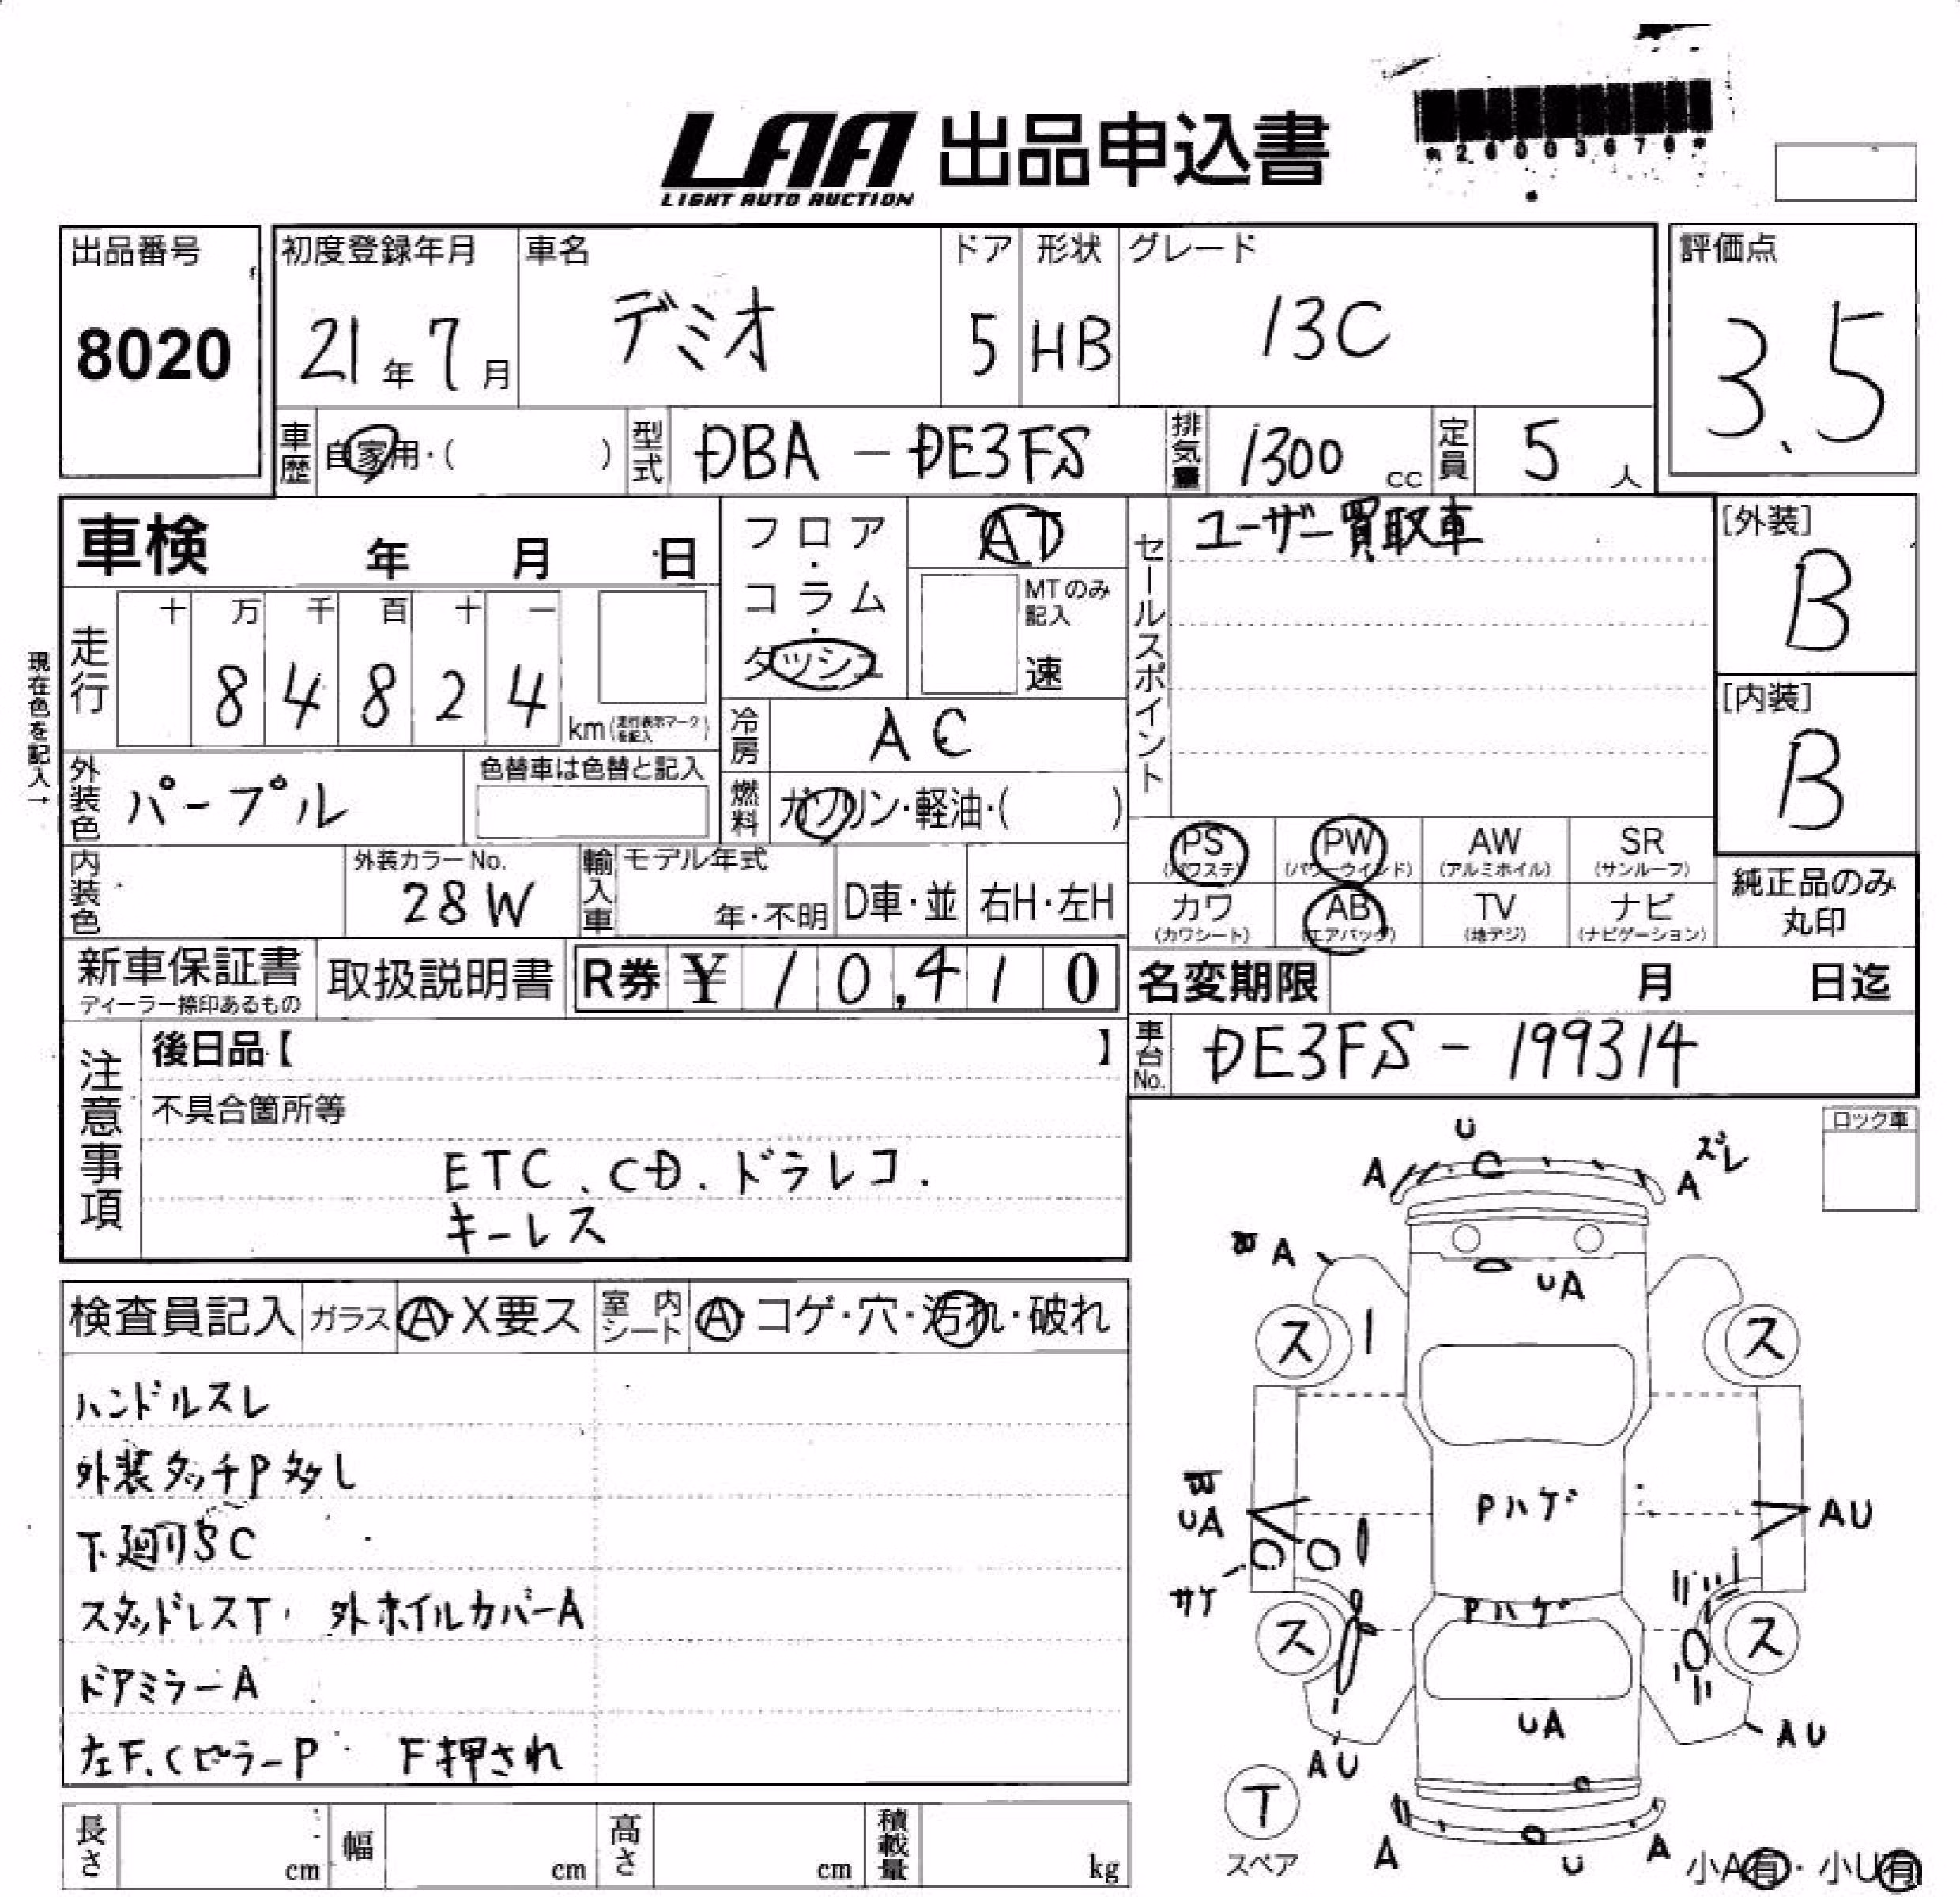 LAA 出品申込書
LIGHT AUTO AUCTION
*26003676*
出品番号
8020
初度登録年月
21年7月
車名
デミオ
ドア
5
形状
HB
グレード
13C
評価点
3.5
車歴
自家用・( )
型式
DBA - DE3FS
排気量
1300 cc
定員
5 人
車検 年 月 日
フロア・コラム・ダッシュ
AT
MTのみ記入
速
セールスポイント
ユーザー買取車
[外装]
B
[内装]
B
現在色を記入→
走行
十 万 千 百 十 一
8 4 8 2 4
km(走行表示マークを記入)
冷房
AC
外装色
パープル
色替車は色替と記入
燃料
ガソリン・軽油・( )
内装色
外装カラーNo.
28W
輸入車
モデル年式
年・不明
D車・並
右H・左H
PS
(パワステ)
PW
(パワーウインド)
AW
(アルミホイル)
SR
(サンルーフ)
カワ
(カワシート)
AB
(エアバッグ)
TV
(地デジ)
ナビ
(ナビゲーション)
純正品のみ
丸印
新車保証書
ディーラー捺印あるもの
取扱説明書
R券 ¥10,410
名変期限 月 日迄
車台No.
DE3FS - 199314
注意事項
後日品【 】
不具合箇所等
ETC、CD.ドラレコ.
キーレス
ロック車
検査員記入
ガラス
A・X要ス
室内シート
A・コゲ・穴・汚れ・破れ
ハンドルスレ
外装タッチP多し
下廻りSC
スタッドレスT, 外ホイルカバーA
ドアミラーA
左F.Cピラー P F押され
U
A
A
ズレ
A
UA
ス
ス
UA
Pハゲ
AU
サケ
Pハゲ
ス
ス
UA
AU
AU
T
スペア
A
U
A
小A有・小U有
長さ cm
幅 cm
高さ cm
積載量 kg